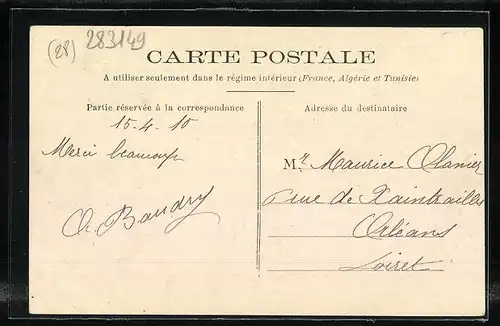 (28)
283149
CARTE POSTALE
A utiliser seulement dans le régime intérieur (France, Algérie et Tunisie)
Partie réservée à la correspondance
15-4-10
Merci beaucoup
Baudry
Adresse du destinataire
Mr. Maurice
rue de Xaintrailles
Orléans
Loiret